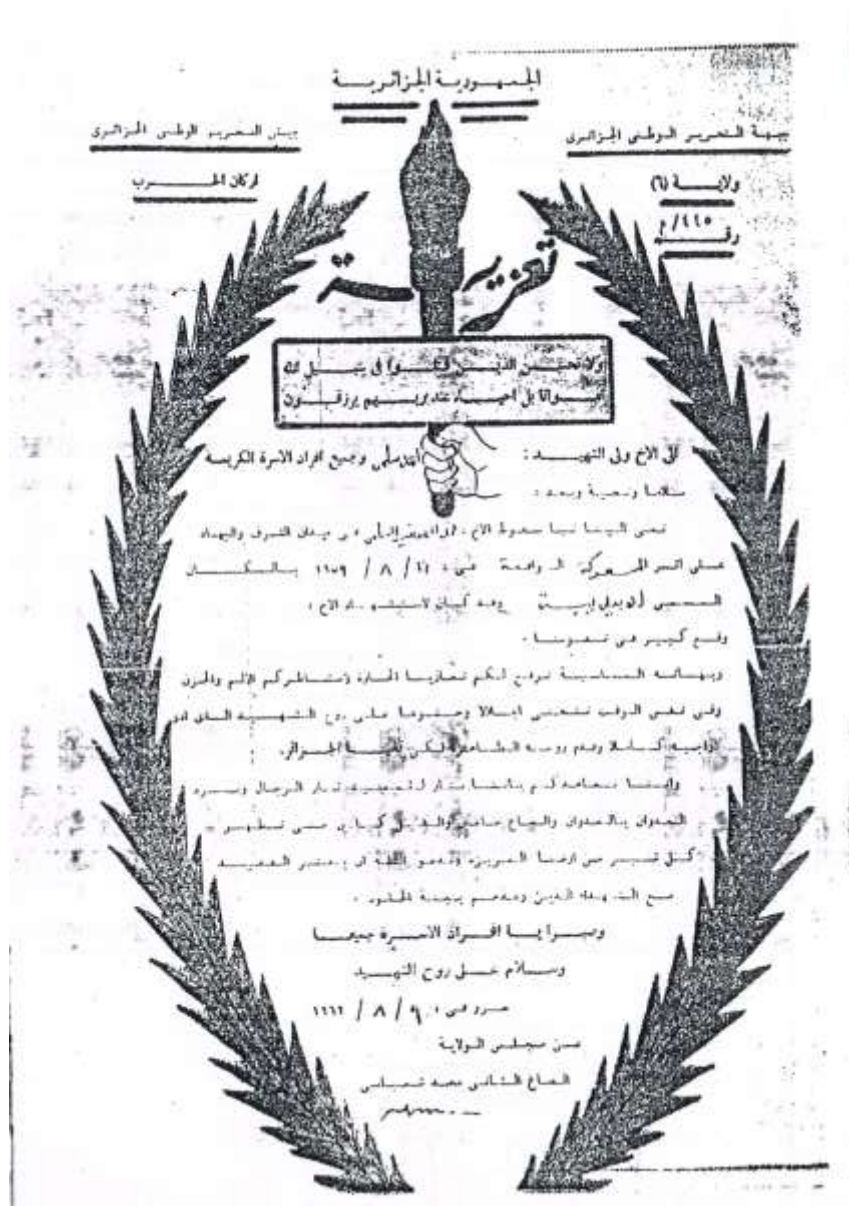 الجمهورية الجزائرية
جبهة التحرير الوطني الجزائري
جيش التحرير الوطني الجزائري
ولاية (٦)
اركان الحرب
رقم
تعزية
ولا تحسبن الذين قتلوا في سبيل الله
امواتا بل احياء عند ربهم يرزقون
الى الاخ ولي الشهيد : وجميع افراد الاسرة الكريمة
سلاما وتحية وبعد :
ننعى الينا نبا سقوط الاخ في ميدان الشرف والجهاد
على اثر المعركة الواقعة في : / ٨ / بالمكان
المسمى وقد كان لاستشهاد الاخ :
وقع كبير في نفوسنا .
وبهاته المناسبة نرفع لكم تعازينا الحارة لاشاطركم الالم والحزن
وفي نفس الوقت ننحني اجلالا وخشوعا على روح الشهيد الذي ادى
واجبه كاملا وقدم روحه الطاهرة لكي تحيا الجزائر.
واننا نعاهدكم باننا الرجال
العدوان بالعدوان حتى تطهر
كل شبر من ارضنا العزيزة وندعو الله ان
مع الشهداء الذين وعدهم بجنة الخلود .
وصبرا يا افراد الاسرة جميعا
وسلام على روح الشهيد
حرر في : / ٨ / ١٩٦٢
عن مجلس الولاية
الصاغ الثاني محمد شعباني